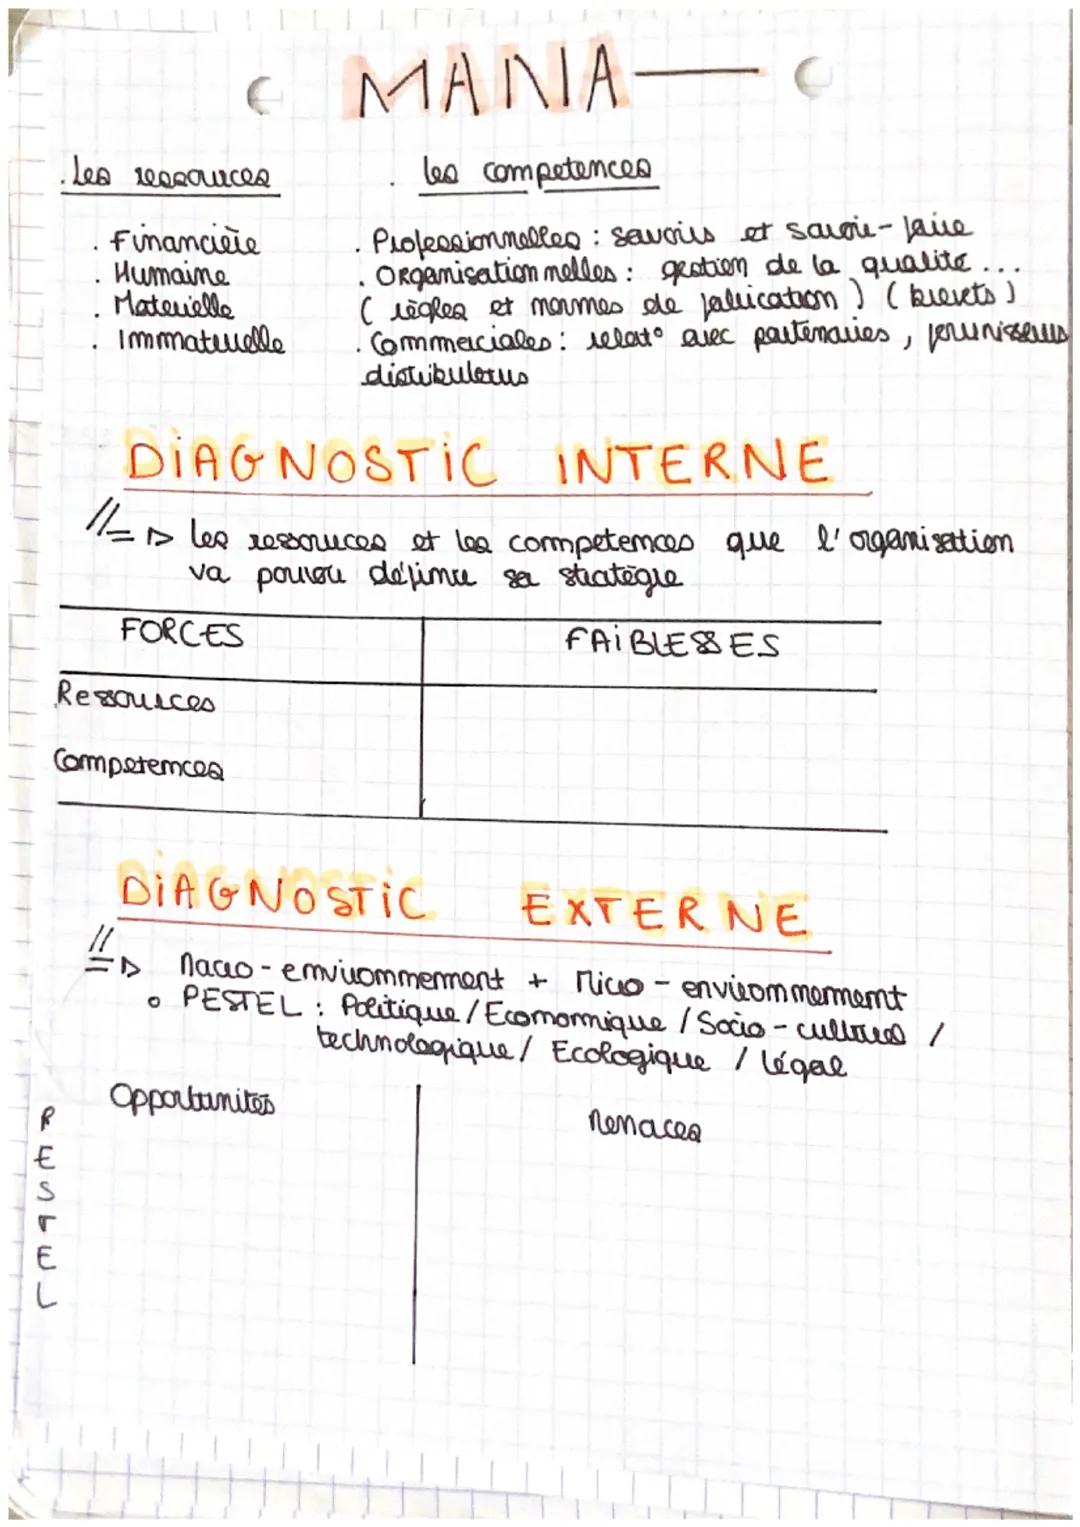 MANA—
. Les ressources
. les competences
. Financière
. Humaine
. Materielle
. Immaterielle
. Professionnelles : savoirs et savoir-faire
. Organisationnelles : gestion de la qualité ...
( règles et normes de fabrication ) ( brevets )
. Commerciales : relat° avec partenaires, fournisseurs
distributeurs
DIAGNOSTIC INTERNE
les ressources et les competences que l'organisation
va pouvoir définir sa stratégie
FORCES
FAIBLESSES
Ressources
Competences
DIAGNOSTIC EXTERNE
Macro-environnement + Micro-environnement
PESTEL : Politique / Economique / Socio-culturel /
technologique / Ecologique / légal
Opportunités
Menaces
P
E
S
T
E
L